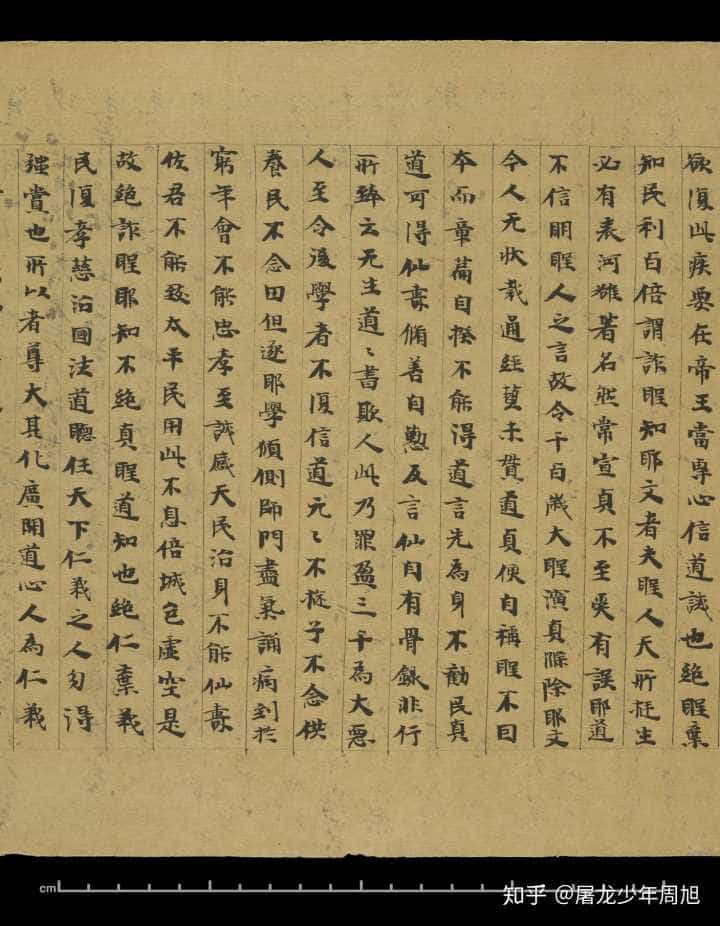 欲復此疾要在帝王當専心信道誡也絶聖棄
知民利百倍謂詐聖知耶文者夫聖人天所挺生
必有表河雒著名然常宣真不至受有誤耶道
不信明聖人之言故令千百歲大聖演真滌除耶文
今人无狀載通經藝未貫道真便自稱聖不曰
本而章篇自揆不能得道言先為身不勸民真
道可得仙壽脩善自懃反言仙自有骨録非行
所臻云无生道〻書欺人此乃罪盈三千為大惡
人至令後學者不復信道元〻不旋子不念供
養民不念田但逐耶學傾側師門盡氣誦病到於
窮年會不能忠孝至誠感天民治身不能仙壽
佐君不能致太平民用此不息倍城邑虛空是
故絶詐聖耶知不絶真聖道知也絶仁棄義
民復孝慈治國法道聽任天下仁義之人勿得
強賞也所以者尊大其化廣開道心人為仁義
cm
知乎 @屠龙少年周旭